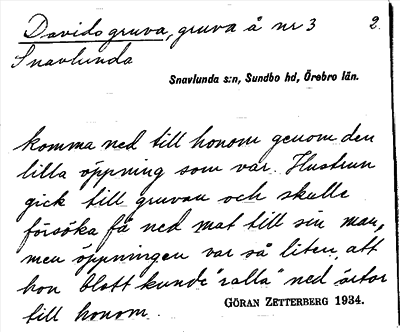 Davids gruva, gruva å nr 3 2.
Snavlunda
Snavlunda s:n, Sundbo hd, Örebro län.
komma ned till honom genom den
lilla öppning som var. Hustrun
gick till gruvan och skulle
försöka få ned mat till sin man,
men öppningen var så liten, att
hon blott kunde "ralla" ned ärtor
till honom.
GÖRAN ZETTERBERG 1934.